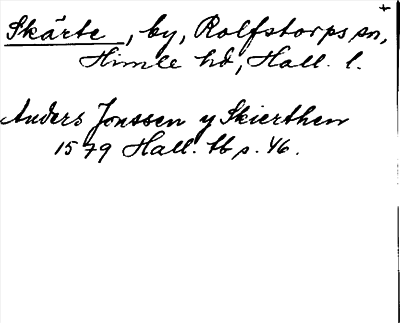 Skärte, by, Rolfstorps sn,
Himle hd, Hall. l.
Anders Jonssen y Skierthen
1579 Hall. tb s. 46.